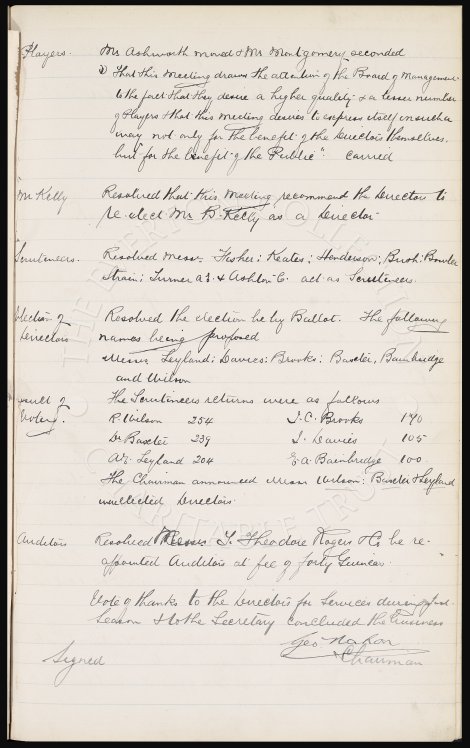 Players. Mr Ashworth moved & Mr Montgomery seconded
"That this Meeting draws the attention of the Board of Management
to the fact that they desire a higher quality & a lesser number
of Players & that this meeting desires to express itself in such a
way not only for the benefit of the Directors themselves,
but for the benefit of the Public". Carred
Mr Kelly Resolved that this meeting recommend the Directors to
re-elect Mr B. Kelly as a Director
Scrutineers. Resolved Messrs. Fisher; Keates; Henderson;
Strain; Turner & Ashton C. act as Scrutineers.
Election of Resolved the election be by Ballot. The following
Directors names being proposed
Messrs Leyland; Davies; Brooks; Baxter, Bainbridge
and Wilson
result of The Scrutineers returns were as follows
Voting. R Wilson 254 J. C. Brooks 140
Dr Baxter 239 J. Davies 105
Leyland 204 Bainbridge 100
The Chairman announced Messrs Wilson; Baxter & Leyland
as elected Directors.
Auditors Resolved Messrs T. Theodore Rogers & Co be re-
appointed Auditors at fee of forty Guineas.
Vote of thanks to the Directors for Services during past
Season & to the Secretary concluded the business
Geo Mahon
Signed Chairman